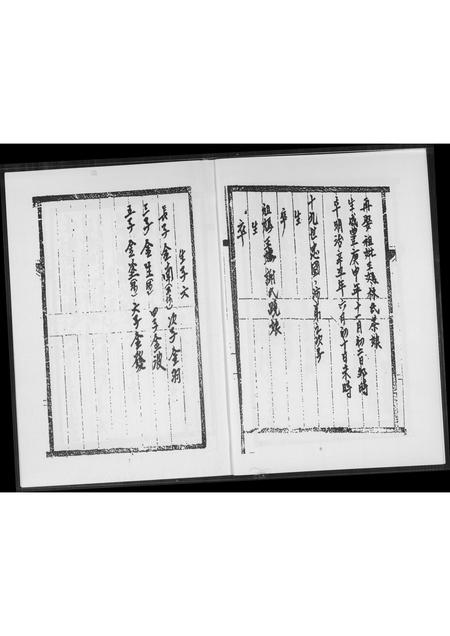 再娶祖妣王媽林氏茶娘
生咸豐庚申年十一月初二日卯時
卒明治辛丑年六月初十日未時
十九世忠國
次子
生
卒
祖媽王媽謝氏
娘
生
卒
生子六
長子金南
次子金羽
三子金生
四子金波
五子金
六子金發